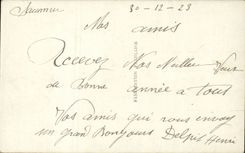 Saumur 30-12-23
Nos amis
Recevez Nos Meilleurs Vœux
de Bonne année a tout
Vos amis qui vous envoy
un grand Bonjour Henri